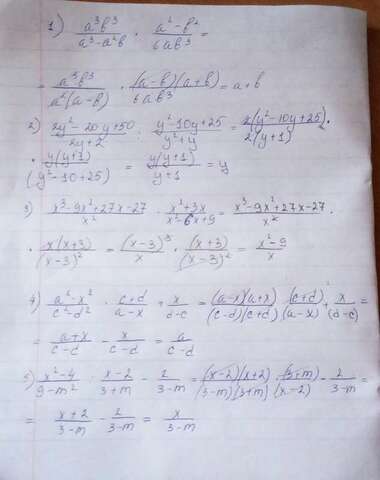 1) a³b³/(a³-a²b) · (a²-b²)/(6ab³) =
= a³b³/(a²(a-b)) · (a-b)(a+b)/(6ab³) = a+b
2) (2y²-20y+50)/(2y+2) : (y²-10y+25)/(y²+y) = 2(y²-10y+25)/(2(y+1)) ·
· y(y+1)/(y²-10+25) = y(y+1)/(y+1) = y
3) (x³-9x²+27x-27)/x² · (x²+3x)/(x²-6x+9) = (x³-9x²+27x-27)/x² ·
· x(x+3)/(x-3)² = (x-3)³/x · (x+3)/(x-3)² = (x²-9)/x
4) (a²-x²)/(c²-d²) · (c+d)/(a-x) + x/(d-c) = (a-x)(a+x)/((c-d)(c+d)) · (c+d)/(a-x) + x/(d-c) =
= (a+x)/(c-d) - x/(c-d) = a/(c-d)
5) (x²-4)/(9-m²) : (x-2)/(3+m) - 2/(3-m) = (x-2)(x+2)/((3-m)(3+m)) · (3+m)/(x-2) - 2/(3-m) =
= (x+2)/(3-m) - 2/(3-m) = x/(3-m)